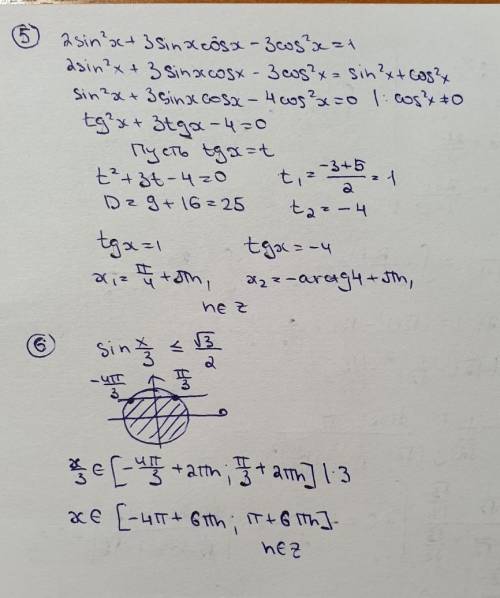 5) 2sin²x + 3sinxcosx − 3cos²x = 1
2sin²x + 3sinxcosx − 3cos²x = sin²x + cos²x
sin²x + 3sinxcosx − 4cos²x = 0 |: cos²x ≠ 0
tg²x + 3tgx − 4 = 0
Пусть tgx = t
t² + 3t − 4 = 0 t₁ = (−3+5)/2 = 1
D = 9 + 16 = 25 t₂ = −4
tgx = 1 tgx = −4
x₁ = π/4 + πn, x₂ = −arctg4 + πn,
n∈z
6) sin x/3 ≤ √3/2
−4π/3 π/3
x/3 ∈ [−4π/3 + 2πn; π/3 + 2πn] |·3
x ∈ [−4π + 6πn; π + 6πn].
n∈z